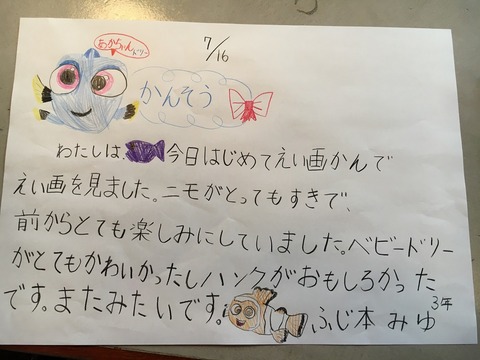 あかちゃんドリー
7/16
かんそう
わたしは、今日はじめてえい画かんで
えい画を見ました。ニモがとってもすきで、
前からとても楽しみにしていました。ベビードリー
がとてもかわいかったしハンクがおもしろかった
です。またみたいです!
3年
ふじ本みゆ